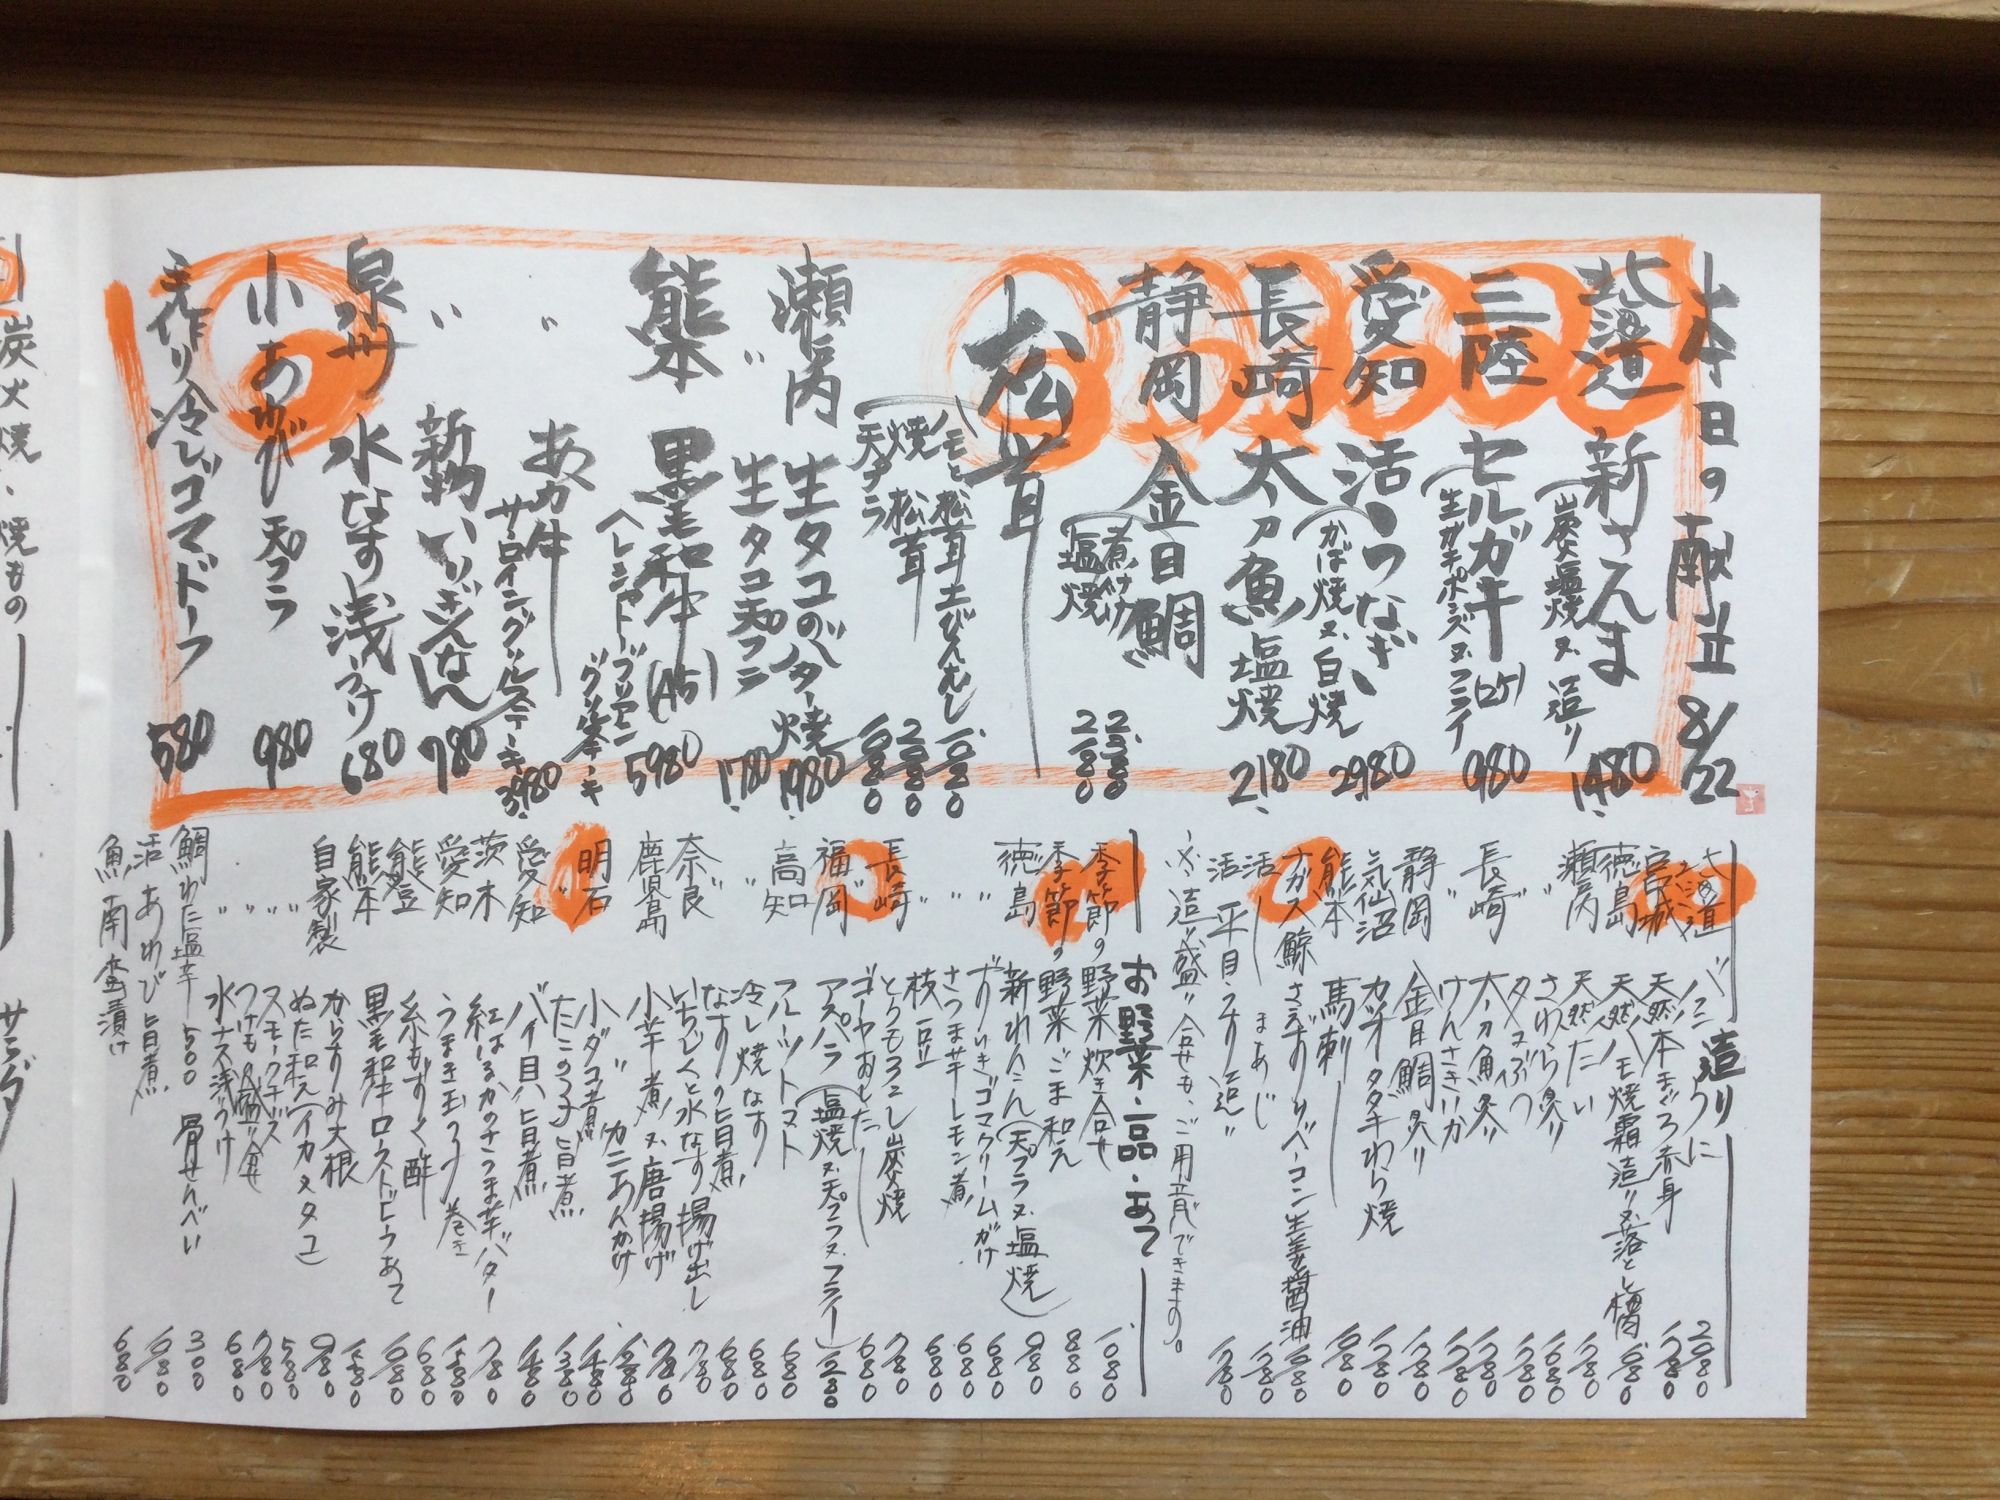 本日の献立 8/22
北海道 新さんま (炭塩焼 又 造り 1480
三陸 セルガキ(2ケ) (生ガキポンズ又フライ 980
愛知 活うなぎ (かば焼 又 白焼 2980
長崎 太刀魚塩焼 2180
静岡 金目鯛
煮付け
塩焼 2180
松茸
ハモと松茸土びんむし
焼松茸 2080
天プラ
瀬戸内 生タコのバター焼 1980
〃 生タコ天プラ 1780
熊本 黒毛和牛(A5) 5980
〃 あか牛
サーロイングリルステーキ 3980
〃 新物いりぎんなん 780
泉州 水なす浅づけ 680
小あわび天プラ 980
手作り冷しゴマドーフ 580
造り
北海道 バフンうに 2080
宮城 天然本まぐろ赤身 1780
徳島 天然ハモ焼霜造り又落とし梅肉 1680
瀬戸内 天然たい
〃 さわら炙り
〃 タコぶつ
長崎 太刀魚炙り
〃 けんさきいか
静岡 金目鯛炙り
気仙沼 カツオタタキわら焼
熊本 馬刺
ナガス鯨 さえずりベーコン生姜醤油
活 まあじ
活 平目
※造り盛り合せも、ご用意できます。
お野菜・一品・あて
季節の野菜炊き合せ 1080
季節の野菜ごま和え 880
徳島 新れんこん(天プラ又塩焼) 980
〃 ずいきゴマクリームがけ 680
〃 さつま芋レモン煮 680
枝豆 680
長崎 とうもろこし炭焼 780
〃 ゴーヤおひたし 680
福岡 アスパラ(塩焼又天プラ又フライ) 1280
高知 フルーツトマト 680
〃 冷し焼なす 680
奈良 なすの旨煮 680
〃 いちじくと水なす揚げ出し 780
鹿児島 小芋煮又唐揚げ 780
〃 カニあんかけ
明石 小ダコ煮
〃 たこの子旨煮
愛知 バイ貝旨煮
茨木 紅はるかのさつま芋バター 780
愛知 うまき玉子巻き
能登 糸もずく酢 680
熊本 黒毛和牛ローストビーフあて
自家製 からすみ大根
〃 ぬた和え(イカ又タコ) 980
〃 スモークチーズ 580
〃 つけもの盛り合せ 780
水ナス浅づけ 680
鯛わた塩辛 500 骨せんべい 300
活あわび旨煮
魚南蛮漬け 680
炭火焼、焼もの
サラダ